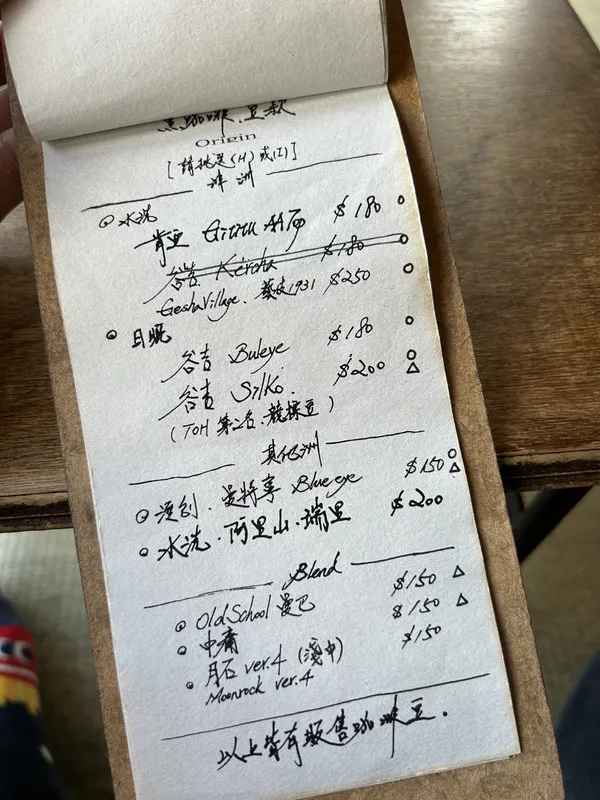 黑咖啡.豆款
Origin
[請挑選(H)或(I)]
非洲
水洗
肯亞 Gititu AA TOP $180
谷吉 Kercha $180
Gesha Village. 藝妓1931 $250
日曬
谷吉 Buleye $180
谷吉 Silko $200
(TOH 第二名.競標豆)
其他洲
濕剝.曼特寧 Blue eye $150
水洗.阿里山.瑞里 $200
Blend
Old School 曼巴 $150
中庸 $150
月石 ver.4 (淺中) $150
Moonrock ver.4
以上皆有販售咖啡豆.